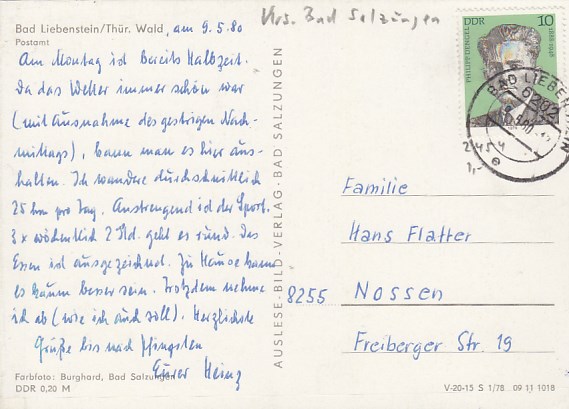 Bad Liebenstein/Thür. Wald, am 9.5.80
Postamt
Krs. Bad Salzungen
Am Montag ist bereits Halbzeit.
Da das Wetter immer schön war
(mit Ausnahme des gestrigen Nach-
mittags), kann man es hier aus-
halten. Ich wandere durchschnittlich
25 km pro Tag. Anstrengend ist der Sport.
3 x wöchentlich 2 Std. geht es rund. Das
Essen ist ausgezeichnet. Zu Hause kann
es kaum besser sein. Trotzdem nehme
ich ab (wie ich auch soll). Herzlichste
Grüße bis nach Pfingsten
Eurer Heinz
Farbfoto: Burghard, Bad Salzungen
DDR 0,20 M
AUSLESE-BILD-VERLAG·BAD SALZUNGEN
DDR 10
PHILIPP DENGEL 1888-1948
BAD LIEBENSTEIN
6202
e
2454
1,-
Familie
Hans Flatter
8255 Nossen
Freiberger Str. 19
V-20-15 S 1/78 09 11 1018